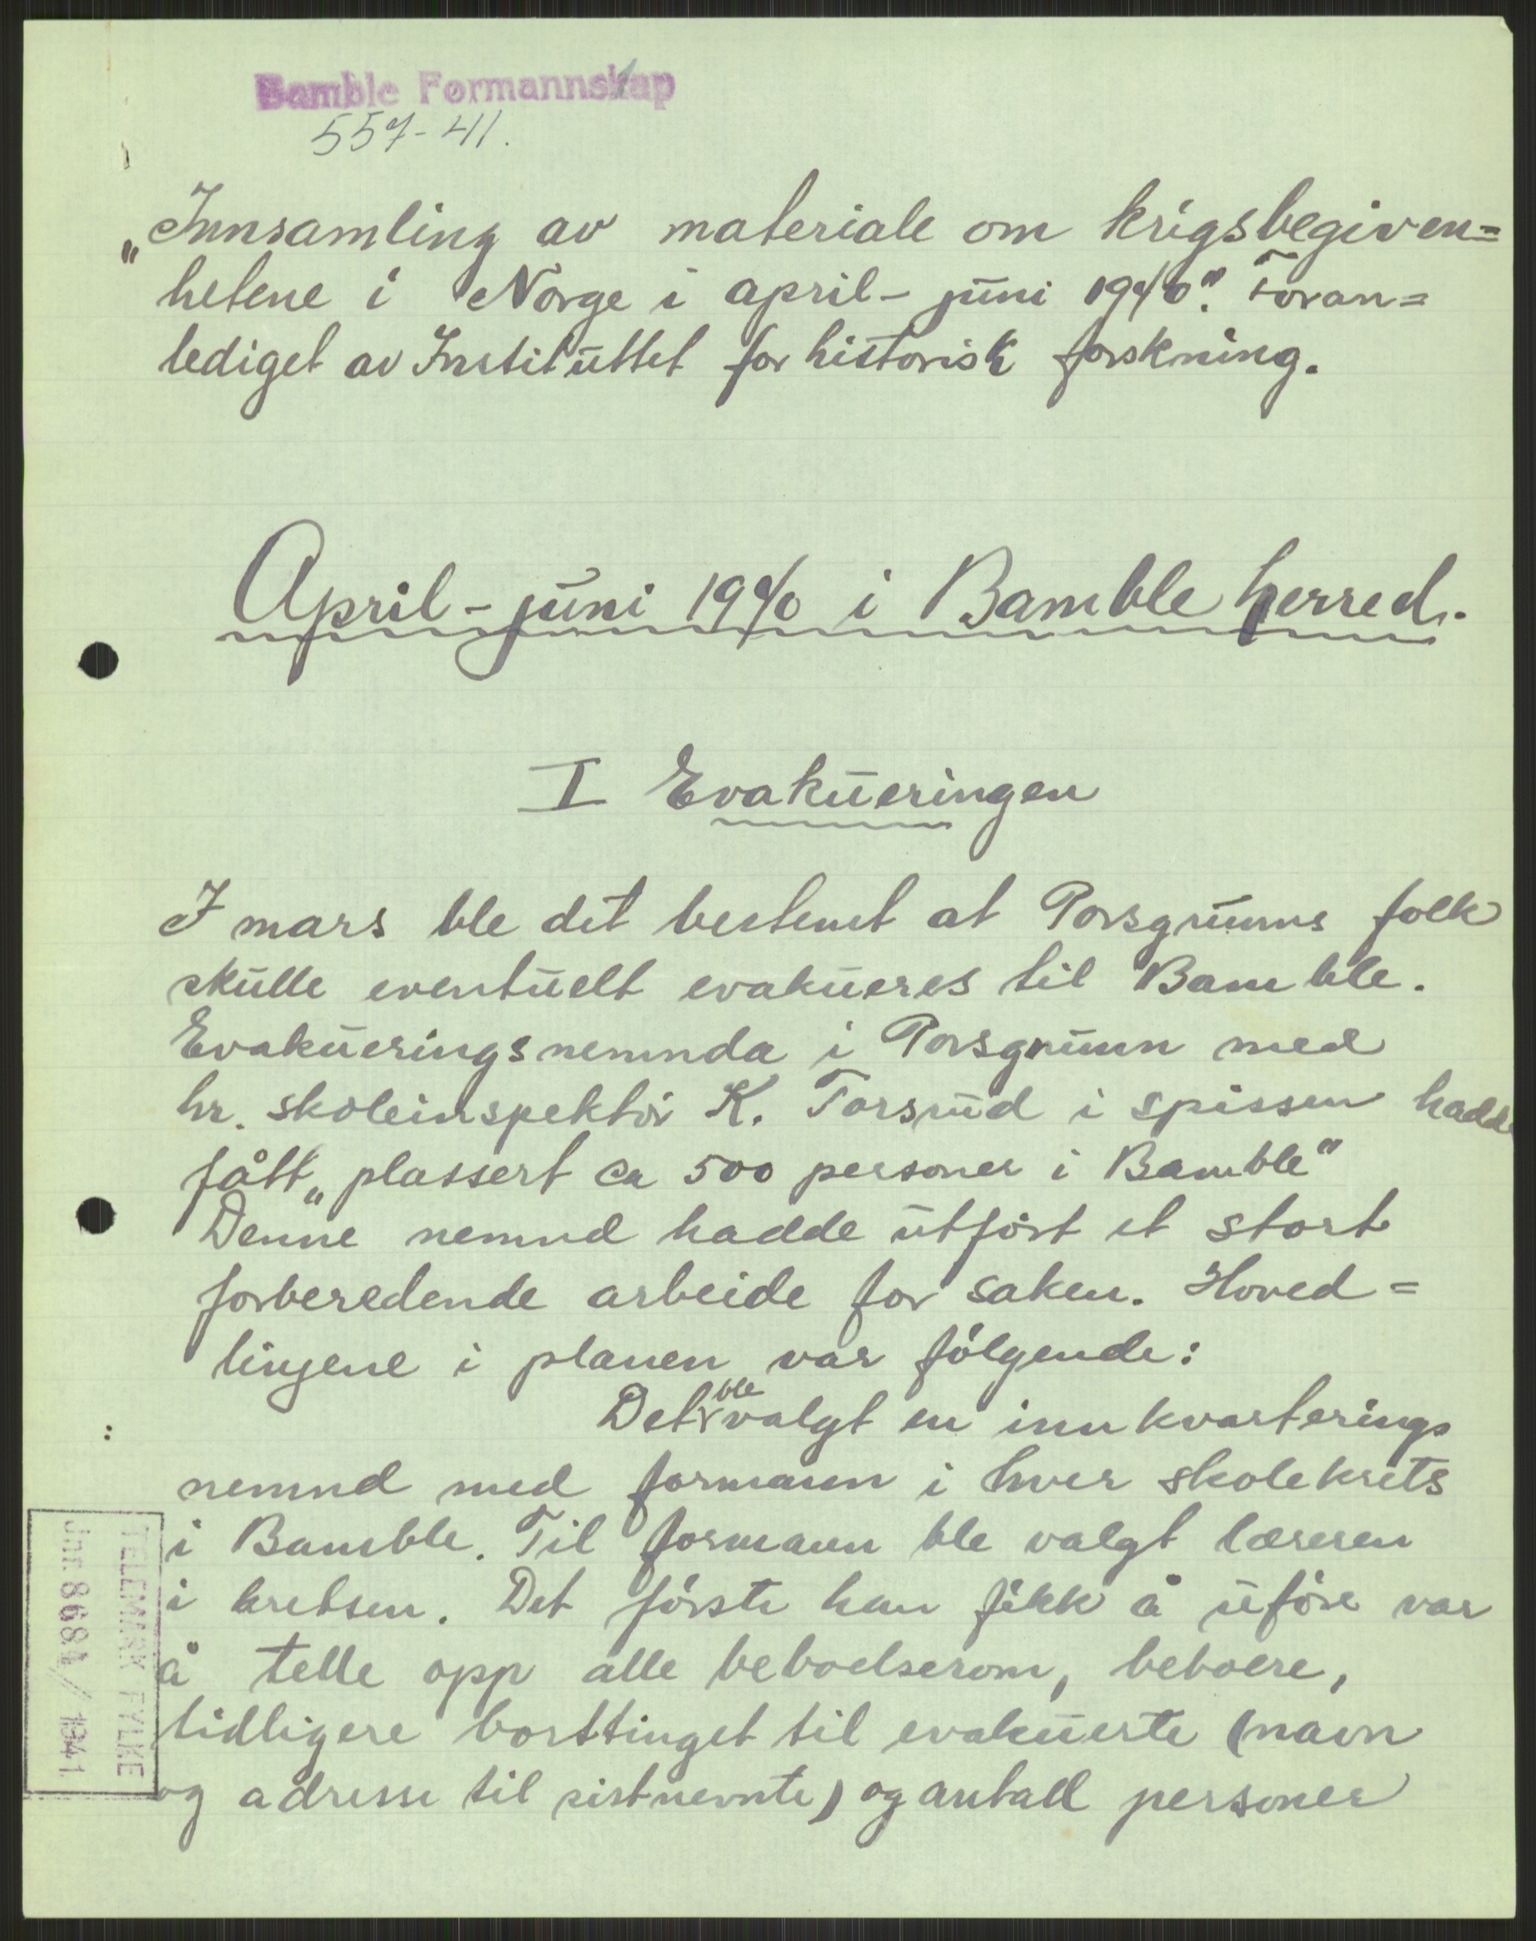 Bamble Formannskap
557-41.
„Innsamling av materiale om krigsbegiven=
hetene i Norge i april-juni 1940". Foran=
lediget av Instituttet for historisk forskning.
April-juni 1940 i Bamble herred.
I Evakueringen
I mars ble det bestemt at Porsgrunns folk
skulle eventuelt evakueres til Bamble.
Evakueringsnemnda i Porsgrunn med
hr. skoleinspektør K. Torsrud i spissen hadde
fått „plassert ca 500 personer i Bamble"
Denne nemnd hadde utført et stort
forberedende arbeide for saken. Hoved=
linjene i planen var følgende:
Det ble valgt en innkvarterings
nemnd med formann i hver skolekrets
i Bamble. Til formann ble valgt læreren
i kretsen. Det første han fikk å uføre var
å telle opp alle beboelserom, beboere,
tidligere borttinget til evakuerte (navn
og adresse til sistnevnte) og antall personer
TELEMARK FYLKE
Jnr. 8681 / 1941